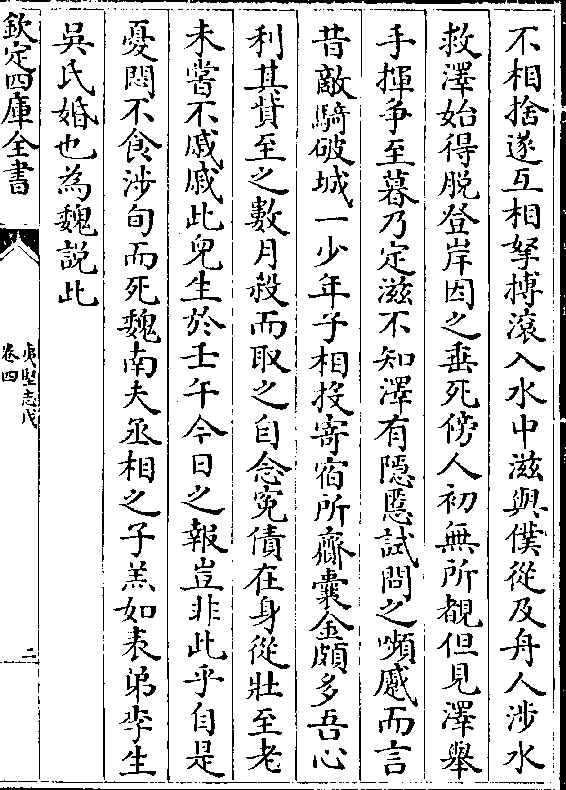 不相捨遂互相拏搏滾入水中滋與僕從及舟人涉水
救澤始得脫登岸因之垂死傍人初無所覩但見澤舉
手揮爭至暮乃定滋不知澤有隱慝試問之嚬蹙而言
昔敵騎破城一少年子相投寄宿所齎囊金頗多吾心
利其貨至之數月殺而取之自念寃債在身從壯至老
未嘗不戚戚此兒生於壬午今日之報豈非此乎自是
憂悶不食涉旬而死魏南夫丞相之子羔如表弟李生
吳氏婚也為魏說此
欽定四庫全書
夷堅志戊
卷四
二